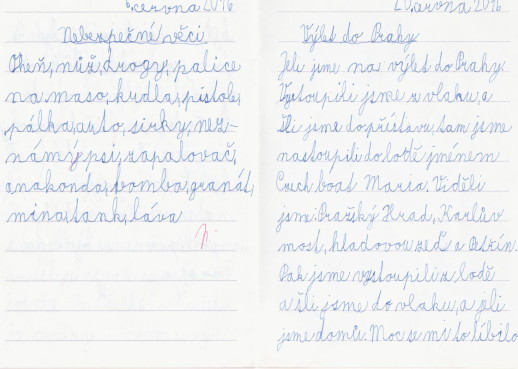 června 2016
Nebezpečné věci
Oheň, nůž, drogy, palice
na maso, kudla, pistole,
pálka, auto, sirky, nez-
námý psi, zapalovač,
anakonda, bomba, granát,
mina, tank, láva
20 června 2016
Výlet do Prahy
Jeli jme na výlet do Prahy.
Vystoupili jsme z vlaku, a
šli jsme do přístavu, tam jsme
nastoupili do lodě jménem
Czech boat Maria. Viděli
jsme: Pražský Hrad, Karlův
most, hladovou zeď a Petřín.
Pak jsme vystoupili z lodě
a šli jsme do vlaku, a jeli
jsme domů. Moc se mi to líbilo